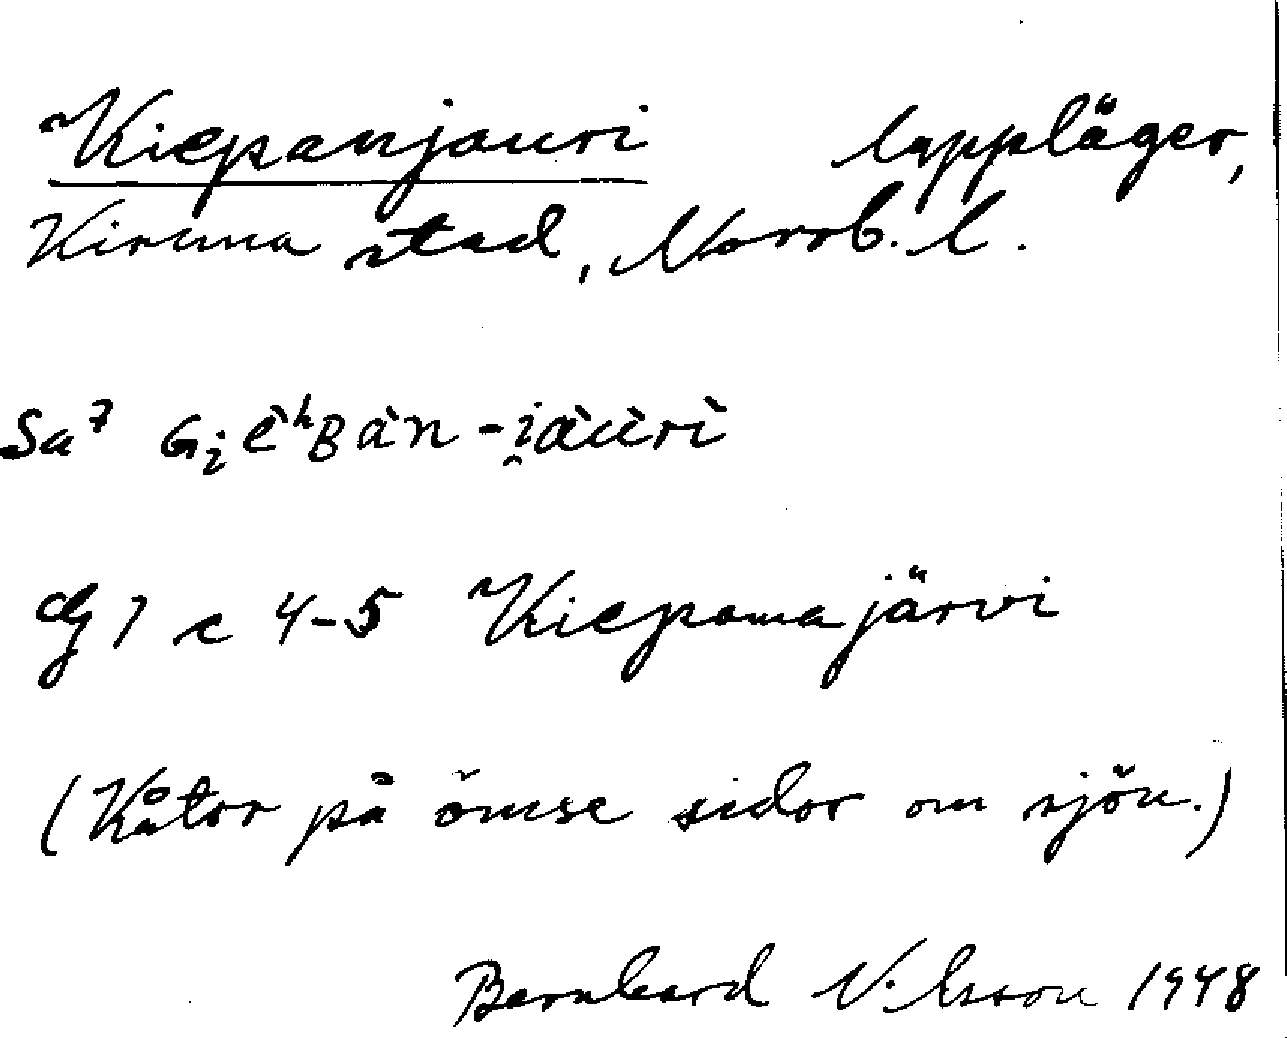 Kiepanjauri lappläger,
Kiruna stad, Norrb. l.
Sa⁷ Gᵢèʰʙàn-i̯àùrì
Gj 1 c 4-5 Kiepamajärvi
(Kåtor på ömse sidor om sjön.)
Bernhard Nilsson 1948